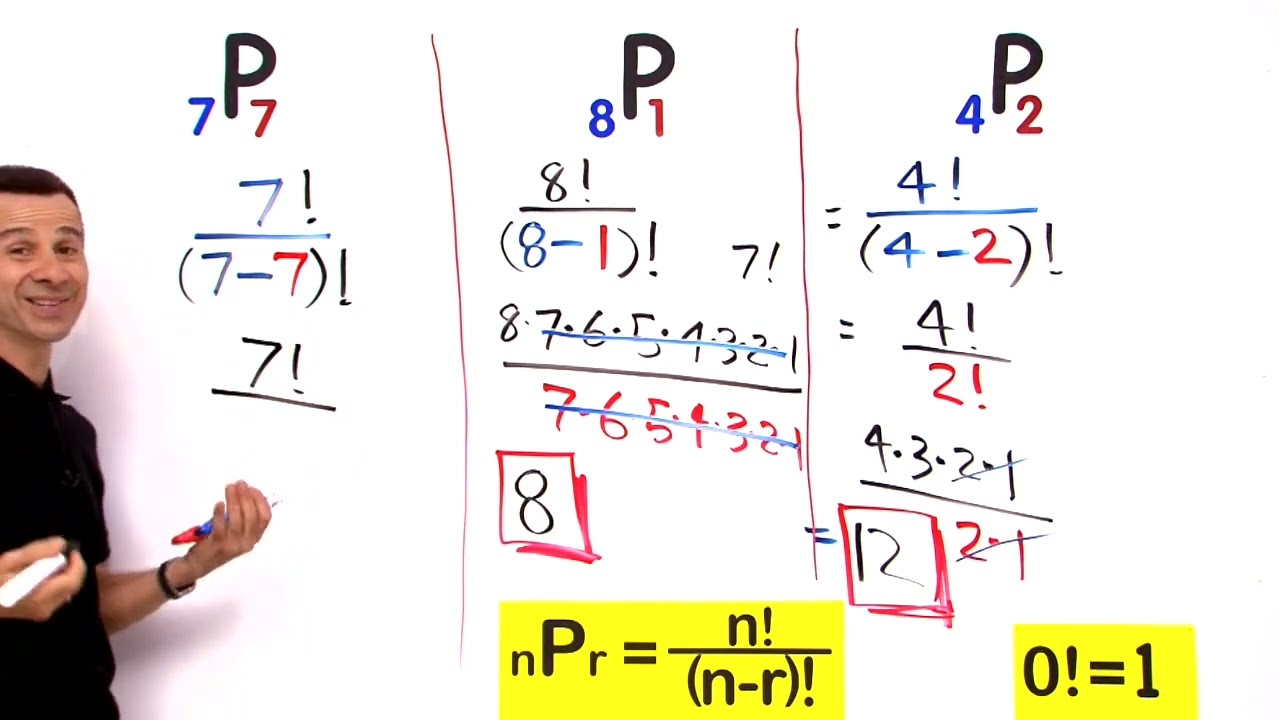 ₇P₇
7!
(7-7)!
7!
₈P₁
8!
(8-1)!
7!
8·7·6·5·4·3·2·1
7·6·5·4·3·2·1
8
₄P₂
= 4!
(4-2)!
= 4!
2!
4·3·2·1
2·1
= 12
nPr = n!
(n-r)!
0!=1